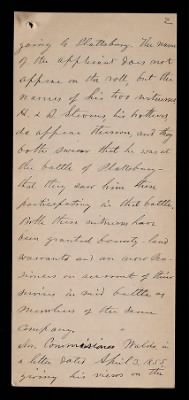 2
going to Plattsburg. The name
of the applicant does not
appear on the roll, but the
names of his two witnesses
H. & D. Stevens, his brothers
do appear thereon, and they
both swear that he was at
the battle of Plattsburg —
that they saw him there
participating in that battle.
Both these witnesses have
been granted bounty-land
warrants and are now pen-
sioners on account of their
services in said battle as
members of the same
company.
Mr. Commissioner Waldo in
a letter dated April 3, 1855,
giving his views on the